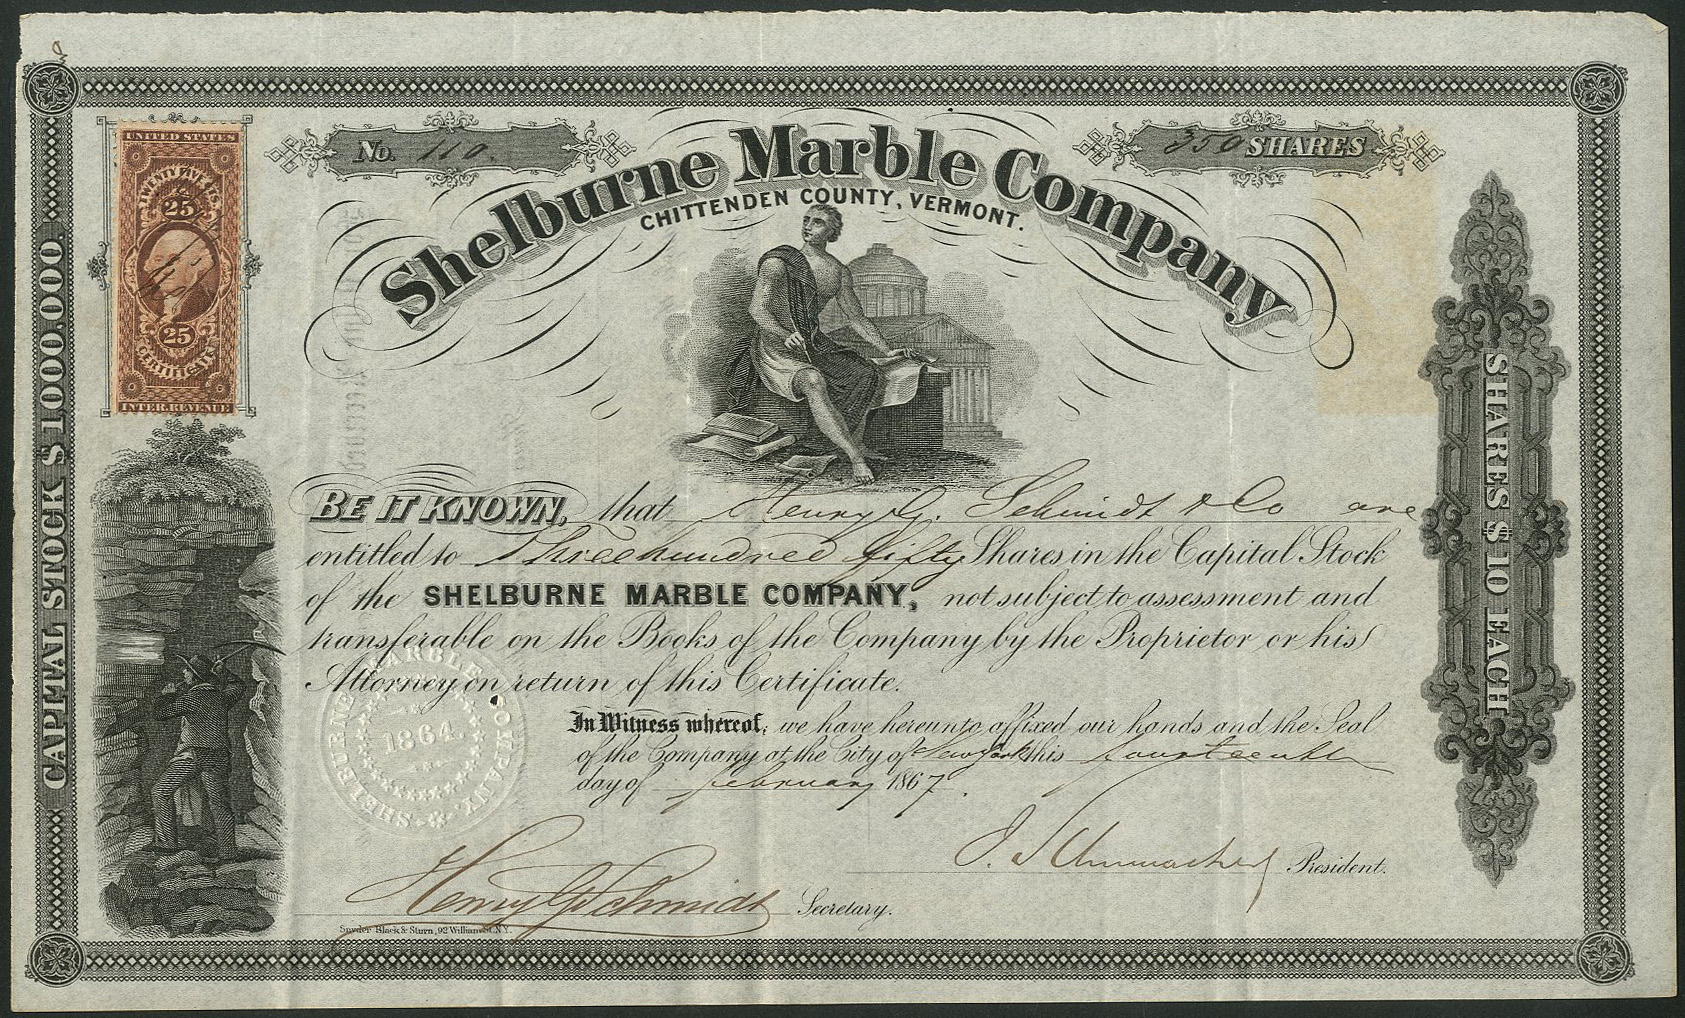 UNITED STATES
TWENTY FIVE CTS.
25
25
CERTIFICATE
INTER. REVENUE
No. 110.
350 SHARES
Shelburne Marble Company
CHITTENDEN COUNTY, VERMONT.
CAPITAL STOCK $ 1,000,000
SHARES $ 10 EACH
BE IT KNOWN, that Henry G. Schmidt & Co are
entitled to Three hundred fifty Shares in the Capital Stock
of the SHELBURNE MARBLE COMPANY, not subject to assessment and
transferable on the Books of the Company by the Proprietor or his
Attorney on return of this Certificate.
In Witness whereof, we have hereunto affixed our hands and the Seal
of the Company at the City of New York this fourteenth
day of february 1867.
SHELBURNE MARBLE COMPANY.
1864.
J. Schumacher President.
Henry G Schmidt Secretary.
Snyder Black & Sturn, 92 William St. N.Y.